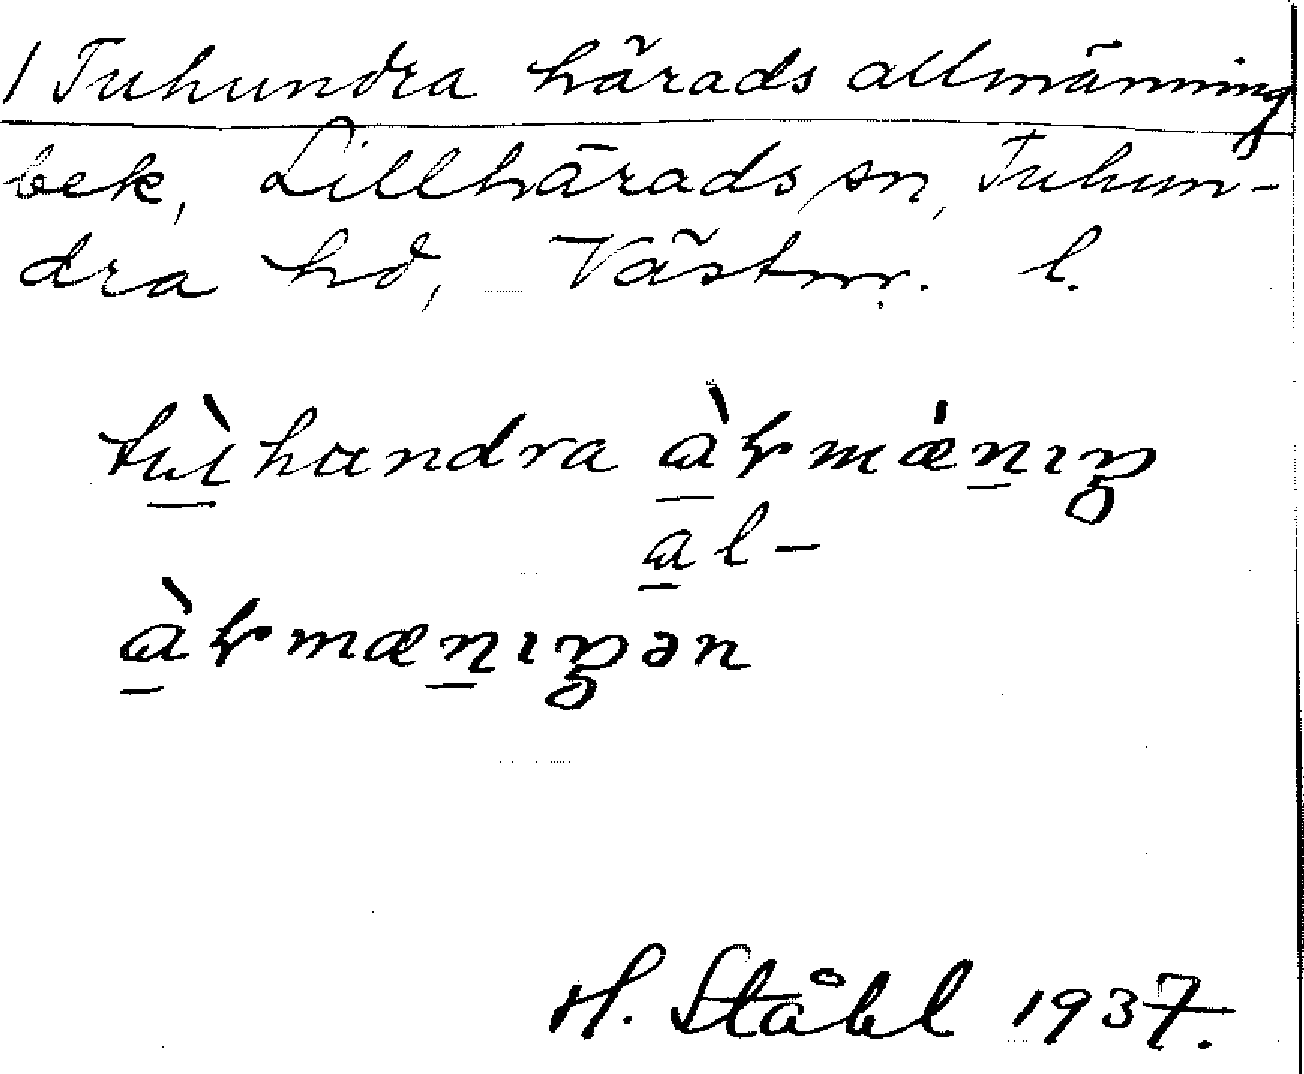 / Tuhundra härads allmänning
bek, Lillhärads sn, Tuhun-
dra hd, Västm. l.
tù̲hundra à̲ƚmǽn̲ıŋ
a̲l-
à̲ƚmæn̲ıŋən
H. Ståhl 1937.